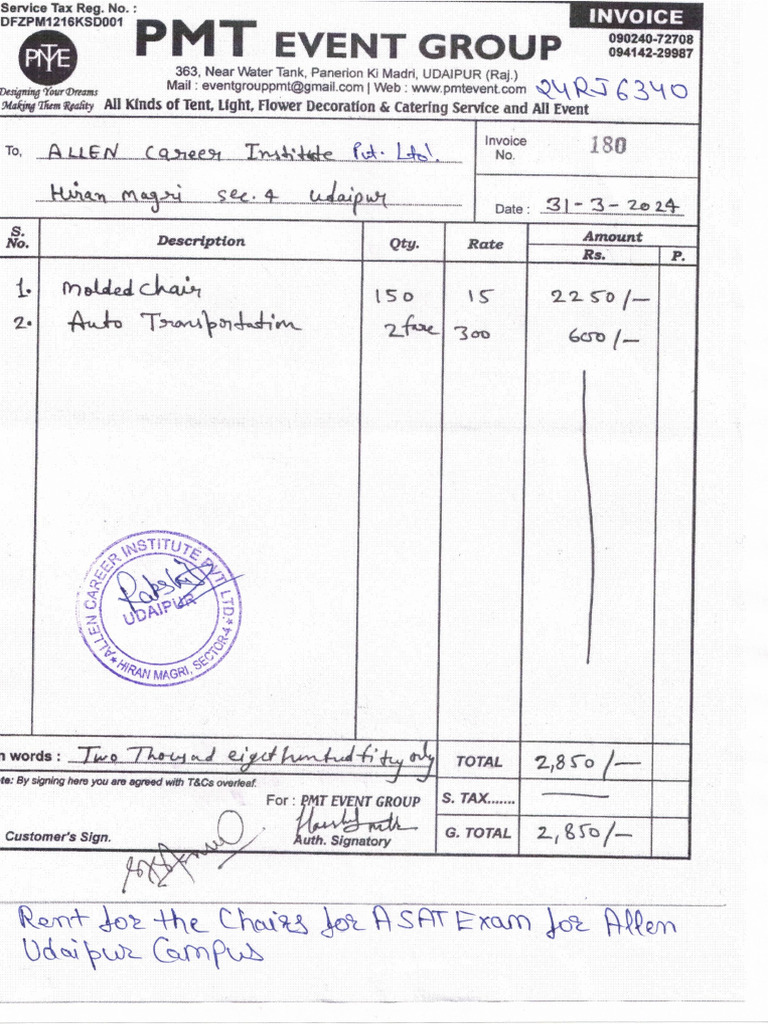 Service Tax Reg. No. :
DFZPM1216KSD001
INVOICE
PMT EVENT GROUP
090240-72708
094142-29987
Designing Your Dreams
Making Them Reality
363, Near Water Tank, Panerion Ki Madri, UDAIPUR (Raj.)
Mail : eventgrouppmt@gmail.com | Web : www.pmtevent.com
24RJ6340
All Kinds of Tent, Light, Flower Decoration & Catering Service and All Event
To, ALLEN Career Institute Pvt. Ltd.
Invoice No. 180
Hiran Magri sec. 4 Udaipur
Date : 31-3-2024
S. No. Description Qty. Rate Amount
Rs. P.
1. Molded Chair 150 15 2250/-
2. Auto Transportation 2 fare 300 600/-
ALLEN CAREER INSTITUTE PVT. LTD.
UDAIPUR
HIRAN MAGRI, SECTOR-4
n words : Two Thousad eight hundred fifty only TOTAL 2,850/-
te: By signing here you are agreed with T&Cs overleaf.
For : PMT EVENT GROUP S. TAX.......
Customer's Sign. Auth. Signatory G. TOTAL 2,850/-
Rent for the Chairs for ASAT Exam for Allen
Udaipur Campus